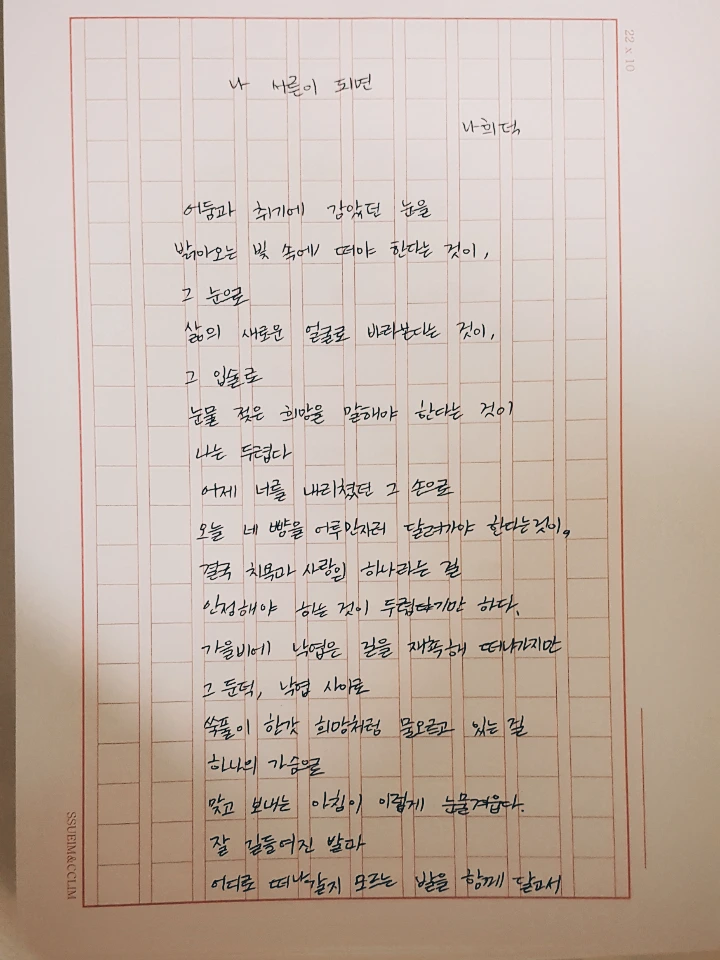 22 x 10
나 서른이 되면
나희덕
어둠과 취기에 감았던 눈을
밝아오는 빛 속에 떠야 한다는 것이,
그 눈으로
삶의 새로운 얼굴로 바라본다는 것이,
그 입술로
눈물 젖은 희망을 말해야 한다는 것이
나는 두렵다
어제 너를 내리쳤던 그 손으로
오늘 네 뺨을 어루만지러 달려가야 한다는 것이,
결국 치욕과 사랑의 하나라는 걸
인정해야 하는 것이 두렵다기만 하다.
가을비에 낙엽은 길을 재촉해 떠나가지만
그 둔덕, 낙엽 사이로
쑥풀이 한갓 희망처럼 물오르고 있는 걸
하나의 가슴으로
맞고 보내는 아침이 이렇게 눈물겨웁다.
잘 길들여진 발과
어디로 떠나갈지 모르는 발을 함께 달고서
SSUEIM&CCLIM